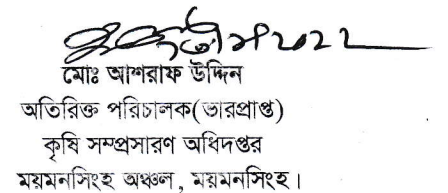 মোঃ আশরাফ উদ্দিন
অতিরিক্ত পরিচালক(ভারপ্রাপ্ত)
কৃষি সম্প্রসারণ অধিদপ্তর
ময়মনসিংহ অঞ্চল, ময়মনসিংহ।